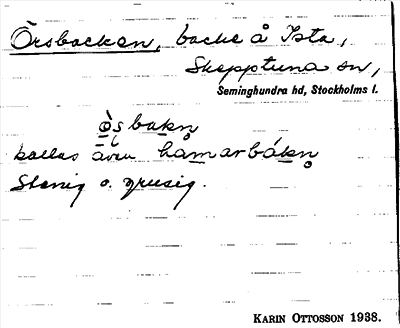 Örsbacken, backe å Ista,
Skepptuna sn,
Seminghundra hd, Stockholms l.
ò̱s̱bakn̥
kallas även hamarbákn̥
Stenig o. grusig.
KARIN OTTOSSON 1938.